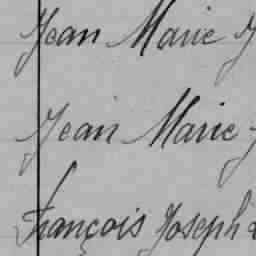 Jean Marie
Jean Marie
François Joseph